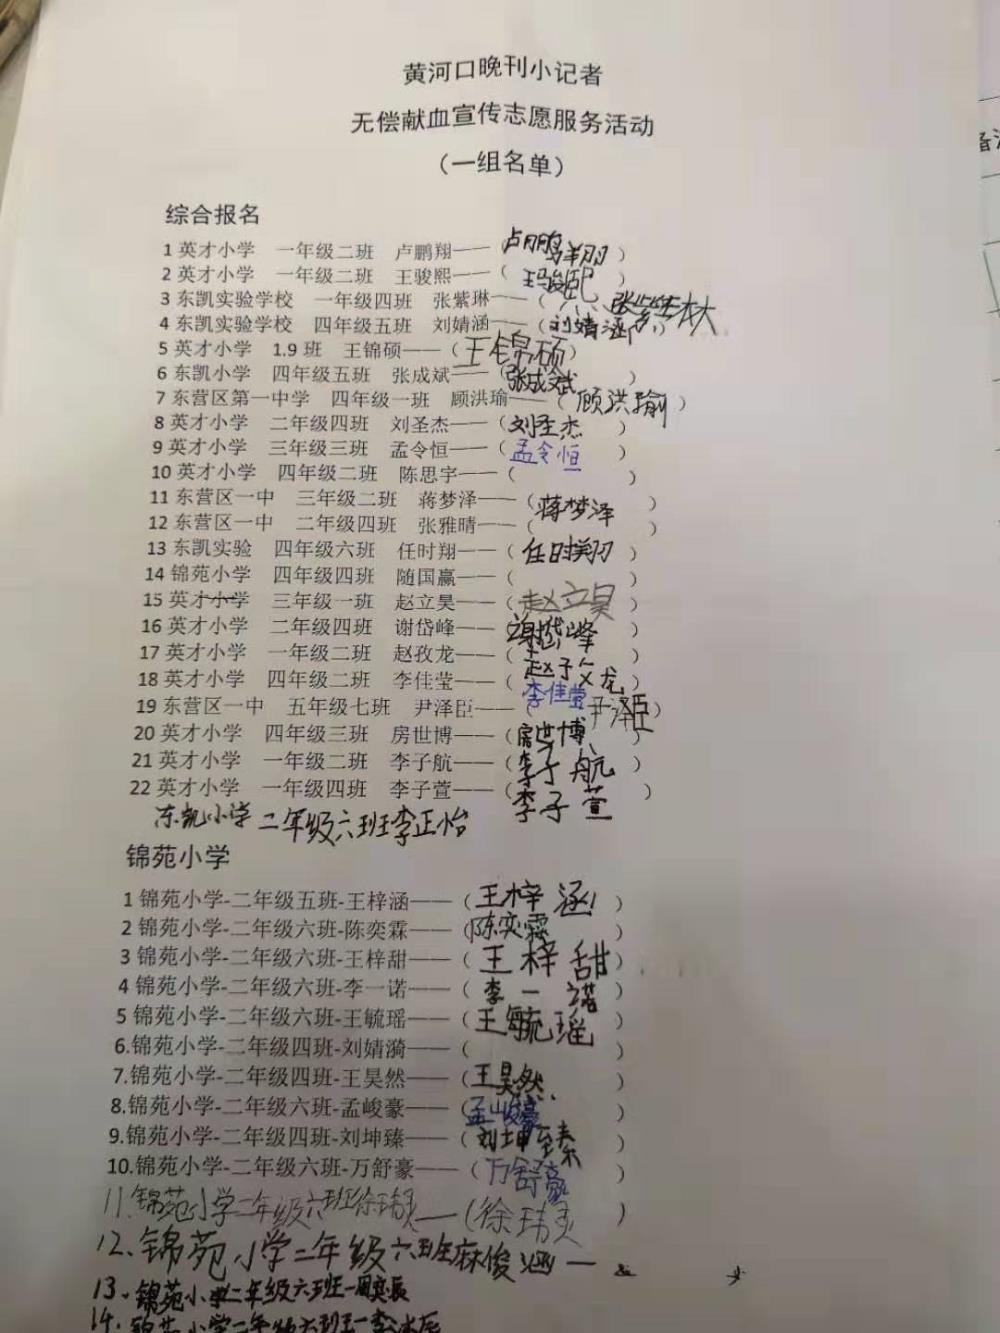 黄河口晚刊小记者
无偿献血宣传志愿服务活动
（一组名单）
综合报名
1 英才小学 一年级二班 卢鹏翔——（卢鹏翔）
2 英才小学 一年级二班 王骏熙——（王骏熙）
3 东凯实验学校 一年级四班 张紫琳——（张紫琳
4 东凯实验学校 四年级五班 刘婧涵——（刘婧涵）
5 英才小学 1.9 班 王锦硕——（王锦硕）
6 东凯小学 四年级五班 张成斌——（张成斌
7 东营区第一中学 四年级一班 顾洪瑜——（顾洪瑜）
8 英才小学 二年级四班 刘圣杰——（刘圣杰）
9 英才小学 三年级三班 孟令恒——（孟令恒）
10 英才小学 四年级二班 陈思宇——（ ）
11 东营区一中 三年级二班 蒋梦泽——（蒋梦泽）
12 东营区一中 二年级四班 张雅晴——（ ）
13 东凯实验 四年级六班 任时翔——（任时翔）
14 锦苑小学 四年级四班 随国赢——（ ）
15 英才小学 三年级一班 赵立昊——（赵立昊）
16 英才小学 二年级四班 谢岱峰——（谢岱峰）
17 英才小学 一年级二班 赵孜龙——（赵孜龙）
18 英才小学 四年级二班 李佳莹——（李佳莹）
19 东营区一中 五年级七班 尹泽臣——（尹泽臣）
20 英才小学 四年级三班 房世博——（房世博）
21 英才小学 一年级二班 李子航——（李子航）
22 英才小学 一年级四班 李子萱——（李子萱）
东凯小学 二年级六班李正怡
锦苑小学
1 锦苑小学-二年级五班-王梓涵——（王梓涵）
2 锦苑小学-二年级六班-陈奕霖——（陈奕霖）
3 锦苑小学-二年级六班-王梓甜——（王梓甜）
4 锦苑小学-二年级六班-李一诺——（李一诺）
5 锦苑小学-二年级六班-王毓瑶——（王毓瑶）
6.锦苑小学-二年级四班-刘婧漪——（ ）
7.锦苑小学-二年级四班-王昊然——（王昊然）
8.锦苑小学-二年级六班-孟峻豪——（孟峻豪）
9.锦苑小学-二年级四班-刘坤臻——（刘坤臻）
10.锦苑小学-二年级六班-万舒豪——（万舒豪）
11.锦苑小学二年级六班徐玮灵—（徐玮灵）
12、锦苑小学二年级六班麻俊涵一
13、锦苑小学二年级六班一周奕辰
14、锦苑小学二年级六班一李